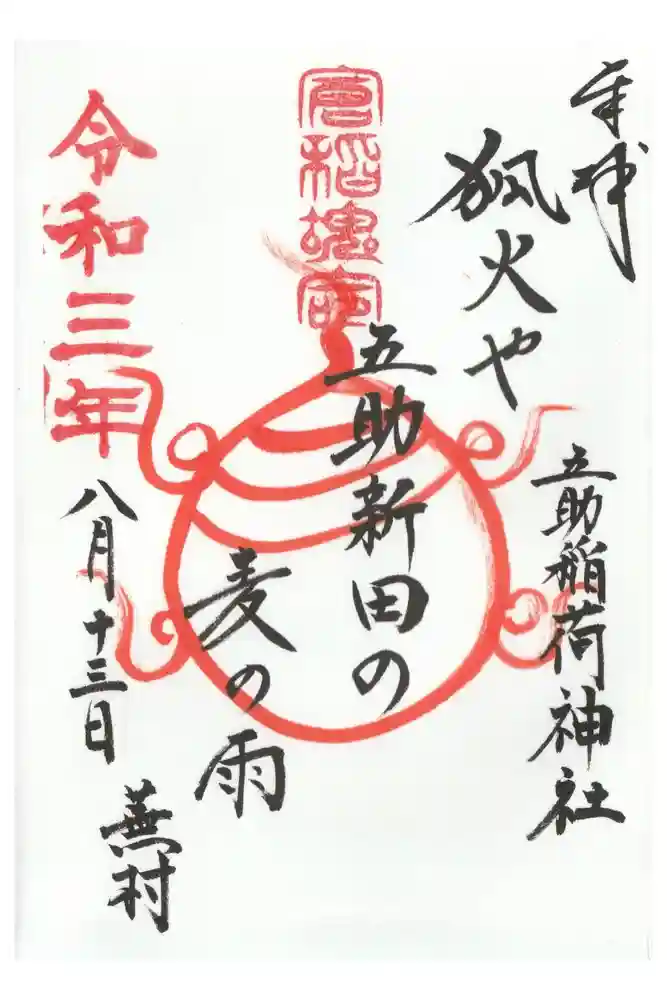 奉拝
狐火や
五助稲荷神社
五助新田の
麦の雨
蕪村
令和三年
八月十三日